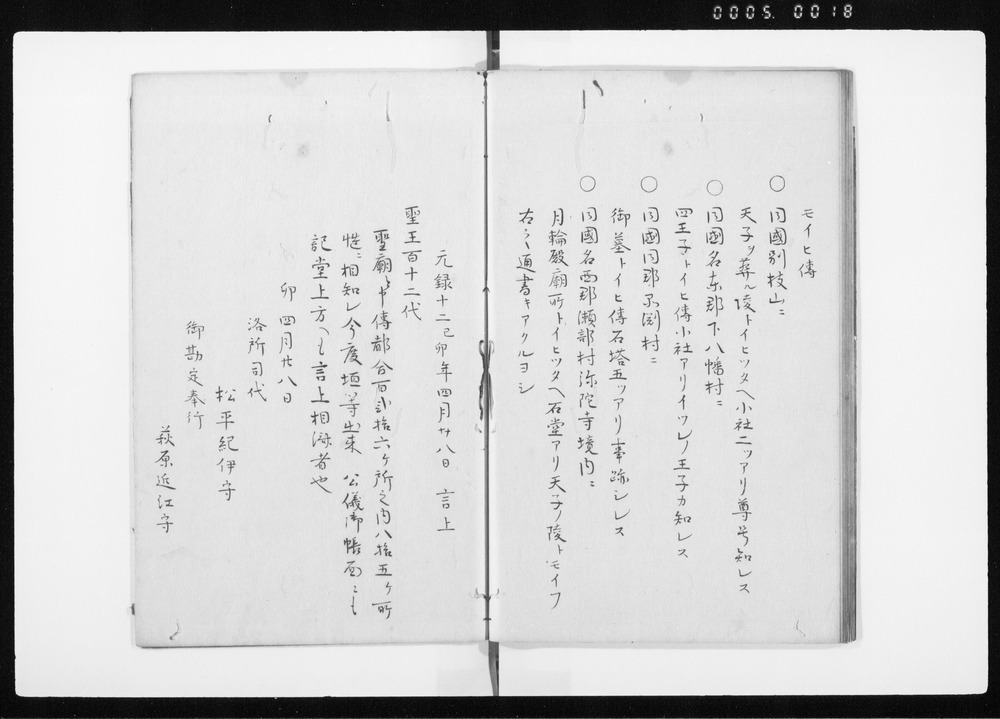 0005. 0018
モイヒ傳
○ 同國別枝山ニ
天子ヲ葬ル陵トイヒツタヘ小社二ツアリ尊号知レス
○ 同國名東郡下八幡村ニ
四王子トイヒ傳小社アリイツレノ王子カ知レス
○ 同國同郡不動村ニ
御墓トイヒ傳石塔五ツアリ事跡シレス
○ 同國名西郡瀬部村弥陀寺境内ニ
月輪殿廟所トイヒツタヘ石堂アリ天子ノ陵トモイフ
右之通書キアクルヨシ
元録十二己卯年四月廿八日 言上
聖王百十二代
聖廟 申傳都合百弐拾六ケ所之内八拾五ケ所
慥ニ相知レ今度垣等出来 公儀御帳面ニも
記堂上方へも言上相済者也
卯 四月廿八日
洛所司代
松平紀伊守
御勘定奉行
萩原近江守